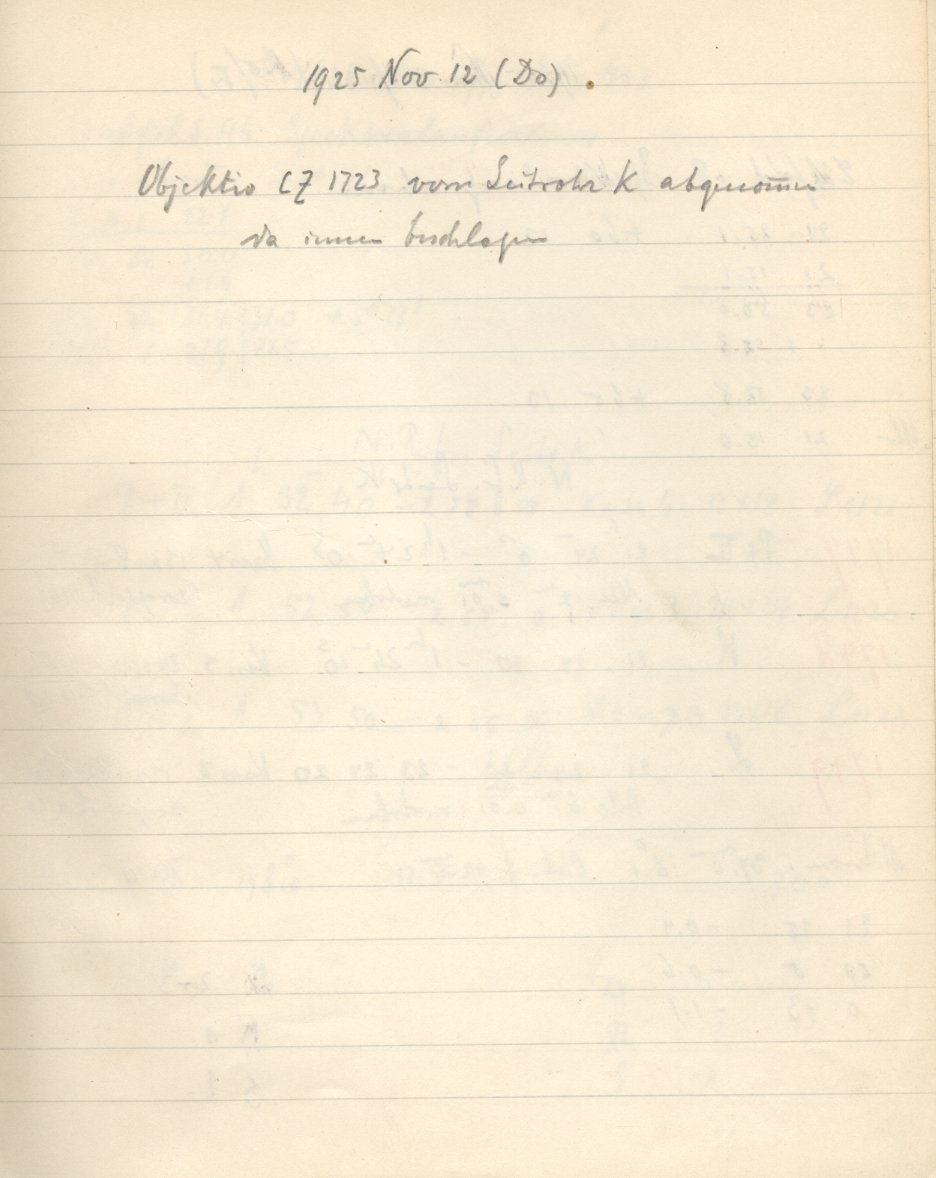 1925 Nov. 12 (Do).
Objektiv CZ 1723 vom Leitrohr K abgenom̅en
da innen beschlagen